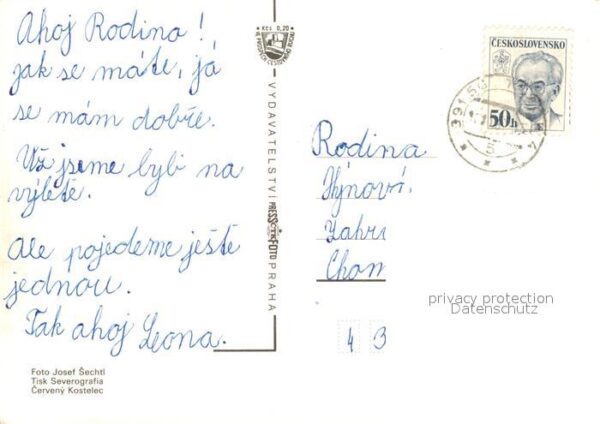 Ahoj Rodina!
jak se máte, já
se mám dobře.
Už jsme byli na
výletě.
Ale pojedeme ještě
jednou.
Tak ahoj Leona.
Foto Josef Šechtl
Tisk Severografia
Červený Kostelec
Kčs 0,20
VE PROSPĚCH CESTOVNÍHO RUCHU
VYDAVATELSTVÍ PRESSFOTO PRAHA
ČESKOSLOVENSKO
50h
391 56
5
Rodina
Hýnoví.
Zahr
Chom
privacy protection
Datenschutz
4 3